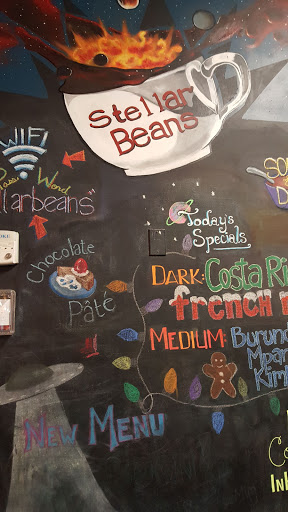 Stellar
Beans
WIFI
Pass Word
llarbeans"
Chocolate
Pâté
Today's
Specials
DARK: Costa Ri
french
MEDIUM: Burund
Mpan
Kim
NEW MENU